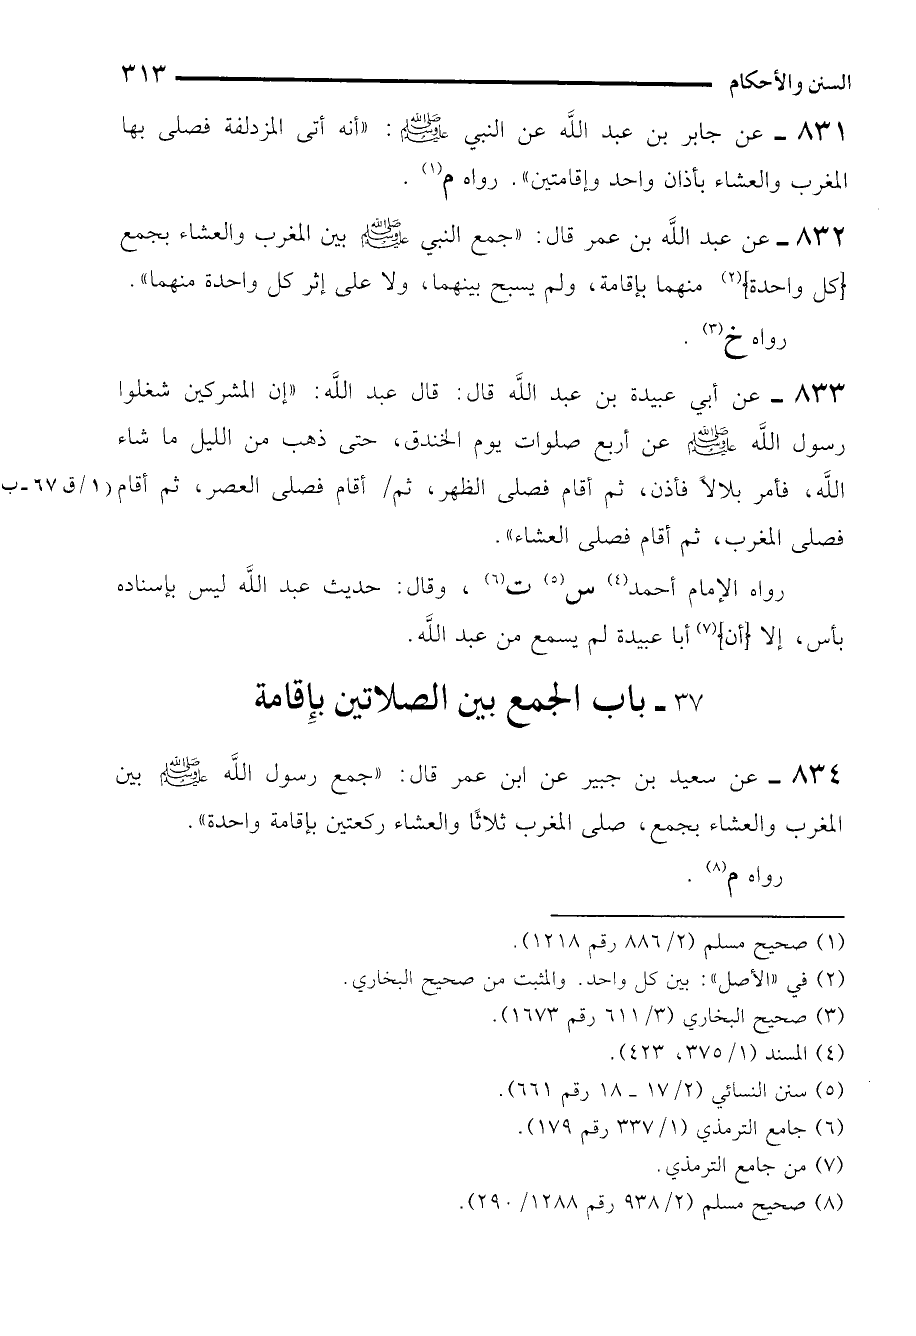 السنن والأحكام ٣١٣
٨٣١ ـ عن جابر بن عبد اللَّه عن النبي ﷺ: «أنه أتى المزدلفة فصلى بها
المغرب والعشاء بأذان واحد وإقامتين». رواه م(١) .
٨٣٢ ـ عن عبد اللَّه بن عمر قال: «جمع النبي ﷺ بين المغرب والعشاء بجمع
{كل واحدة}(٢) منهما بإقامة، ولم يسبح بينهما، ولا على إثر كل واحدة منهما».
رواه خ(٣) .
٨٣٣ ـ عن أبي عبيدة بن عبد اللَّه قال: قال عبد اللَّه: «إن المشركين شغلوا
رسول اللَّه ﷺ عن أربع صلوات يوم الخندق، حتى ذهب من الليل ما شاء
اللَّه، فأمر بلالاً فأذن، ثم أقام فصلى الظهر، ثم/ أقام فصلى العصر، ثم أقام (١/ق ٦٧ـب
فصلى المغرب، ثم أقام فصلى العشاء».
رواه الإمام أحمد(٤) س(٥) ت(٦) ، وقال: حديث عبد اللَّه ليس بإسناده
بأس، إلا {أن}(٧) أبا عبيدة لم يسمع من عبد اللَّه.
٣٧ ـ باب الجمع بين الصلاتين بإِقامة
٨٣٤ ـ عن سعيد بن جبير عن ابن عمر قال: «جمع رسول اللَّه ﷺ بين
المغرب والعشاء بجمع، صلى المغرب ثلاثًا والعشاء ركعتين بإقامة واحدة».
رواه م(٨) .
(١) صحيح مسلم (٢/ ٨٨٦ رقم ١٢١٨).
(٢) في «الأصل»: بين كل واحد. والمثبت من صحيح البخاري.
(٣) صحيح البخاري (٣/ ٦١١ رقم ١٦٧٣).
(٤) المسند (١/ ٣٧٥، ٤٢٣).
(٥) سنن النسائي (٢/ ١٧ ـ ١٨ رقم ٦٦١).
(٦) جامع الترمذي (١/ ٣٣٧ رقم ١٧٩).
(٧) من جامع الترمذي.
(٨) صحيح مسلم (٢/ ٩٣٨ رقم ١٢٨٨/ ٢٩٠).